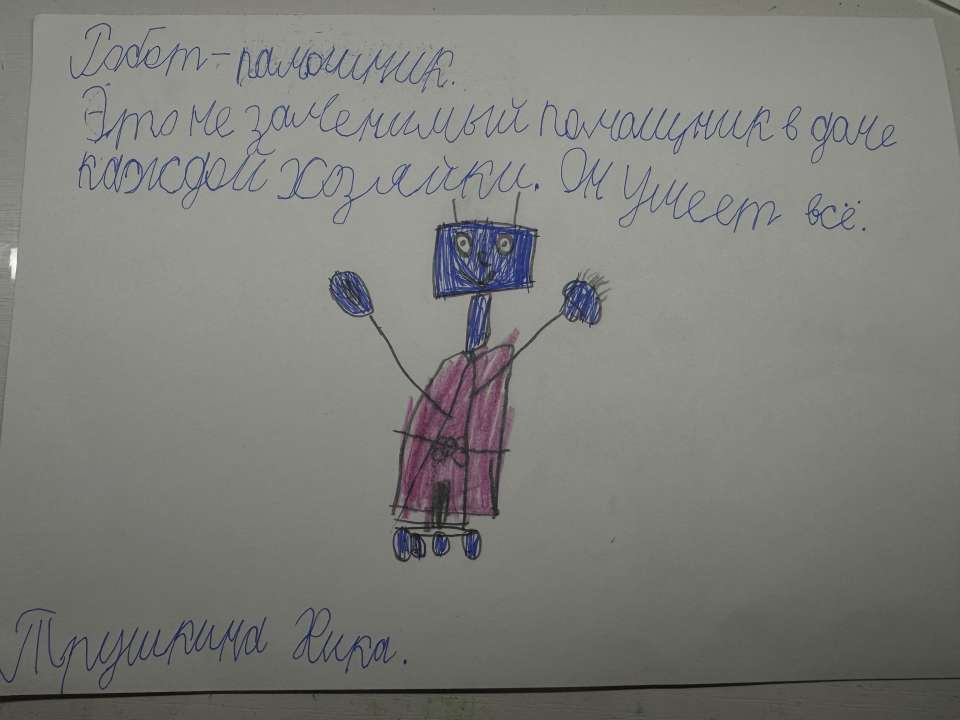 Робот-памошник.
Это не заменимый помощник в доме
каждой хозяйки. Он умеет всё.
Трушкина Ника.